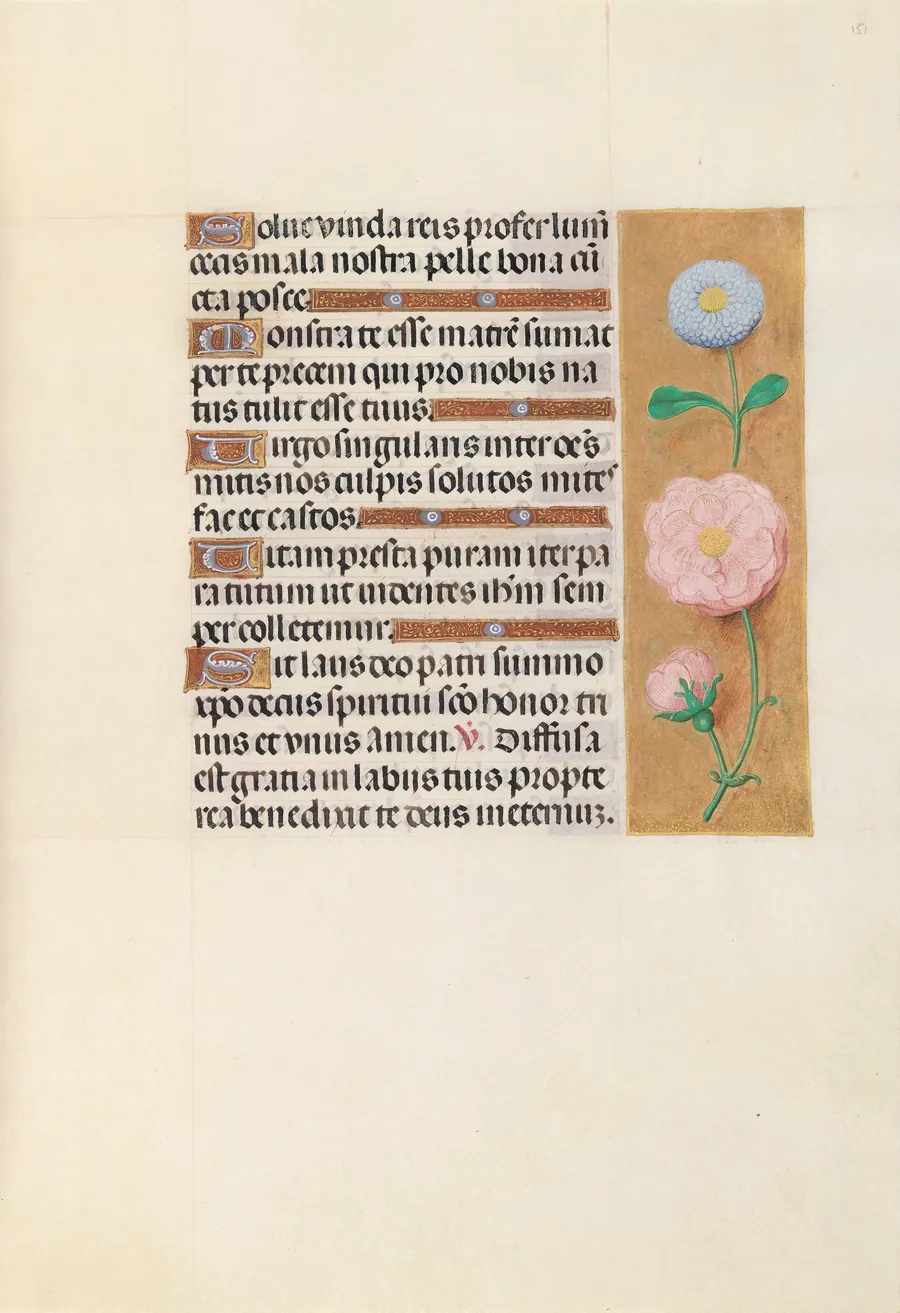 151
Solue vincla reis profer lumē
cecis mala nostra pelle bona cū
cta posce.
Monstra te esse matrē sumat
per te precem qui pro nobis na
tus tulit esse tuus.
Uirgo singularis inter oēs
mitis nos culpis solutos mites
fac et castos.
Uitam presta puram iter pa
ra tutum ut uidentes ihm̄ sem
per colletemur.
Sit laus deo patri summo
xp̄o decus spiritui scō honor tri
nus et vnus Amen. V̇. Diffusa
est gratia in labijs tuis propte
rea benedixit te deus in eternuꝫ.